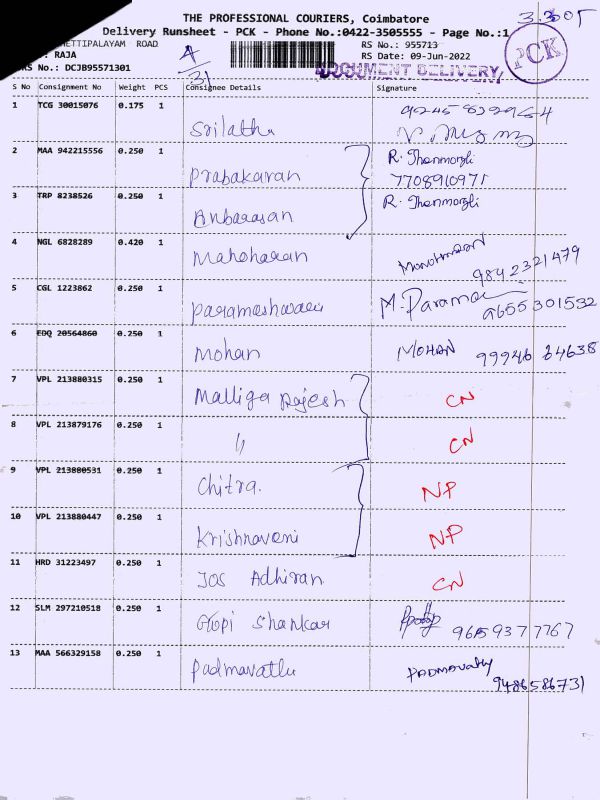 THE PROFESSIONAL COURIERS, Coimbatore
3.30
Delivery Runsheet - PCK - Phone No.:0422-3505555 - Page No.:1
HETTIPALAYAM ROAD
: RAJA
RS No.: DCJB95571301
4/31
RS No.: 955713
RS Date: 09-Jun-2022
DOCUMENT DELIVERY
PCK
S No Consignment No Weight PCS Consignee Details Signature
1 TCG 30015076 0.175 1 Srilatha
2 MAA 942215556 0.250 1 Prabakaran R. Thenmozli
7708910971
3 TRP 8238526 0.250 1 Anbarasan R. Thenmozli
4 NGL 6828289 0.420 1 Manoharan Manoharan
9842321479
5 CGL 1223862 0.250 1 Parameshwari M. Parama
9655301532
6 EDQ 20564860 0.250 1 Mohan MOHAN 99946 64638
7 VPL 213880315 0.250 1 Malliga Rajesh CN
8 VPL 213879176 0.250 1 〃 CN
9 VPL 213880531 0.250 1 Chitra. NP
10 VPL 213880447 0.250 1 Krishnaveni NP
11 HRD 31223497 0.250 1 Jos Adhiran CN
12 SLM 297210518 0.250 1 Gopi Shankar 9659377767
13 MAA 566329158 0.250 1 Padmavathi PADMAVathy
9486586731